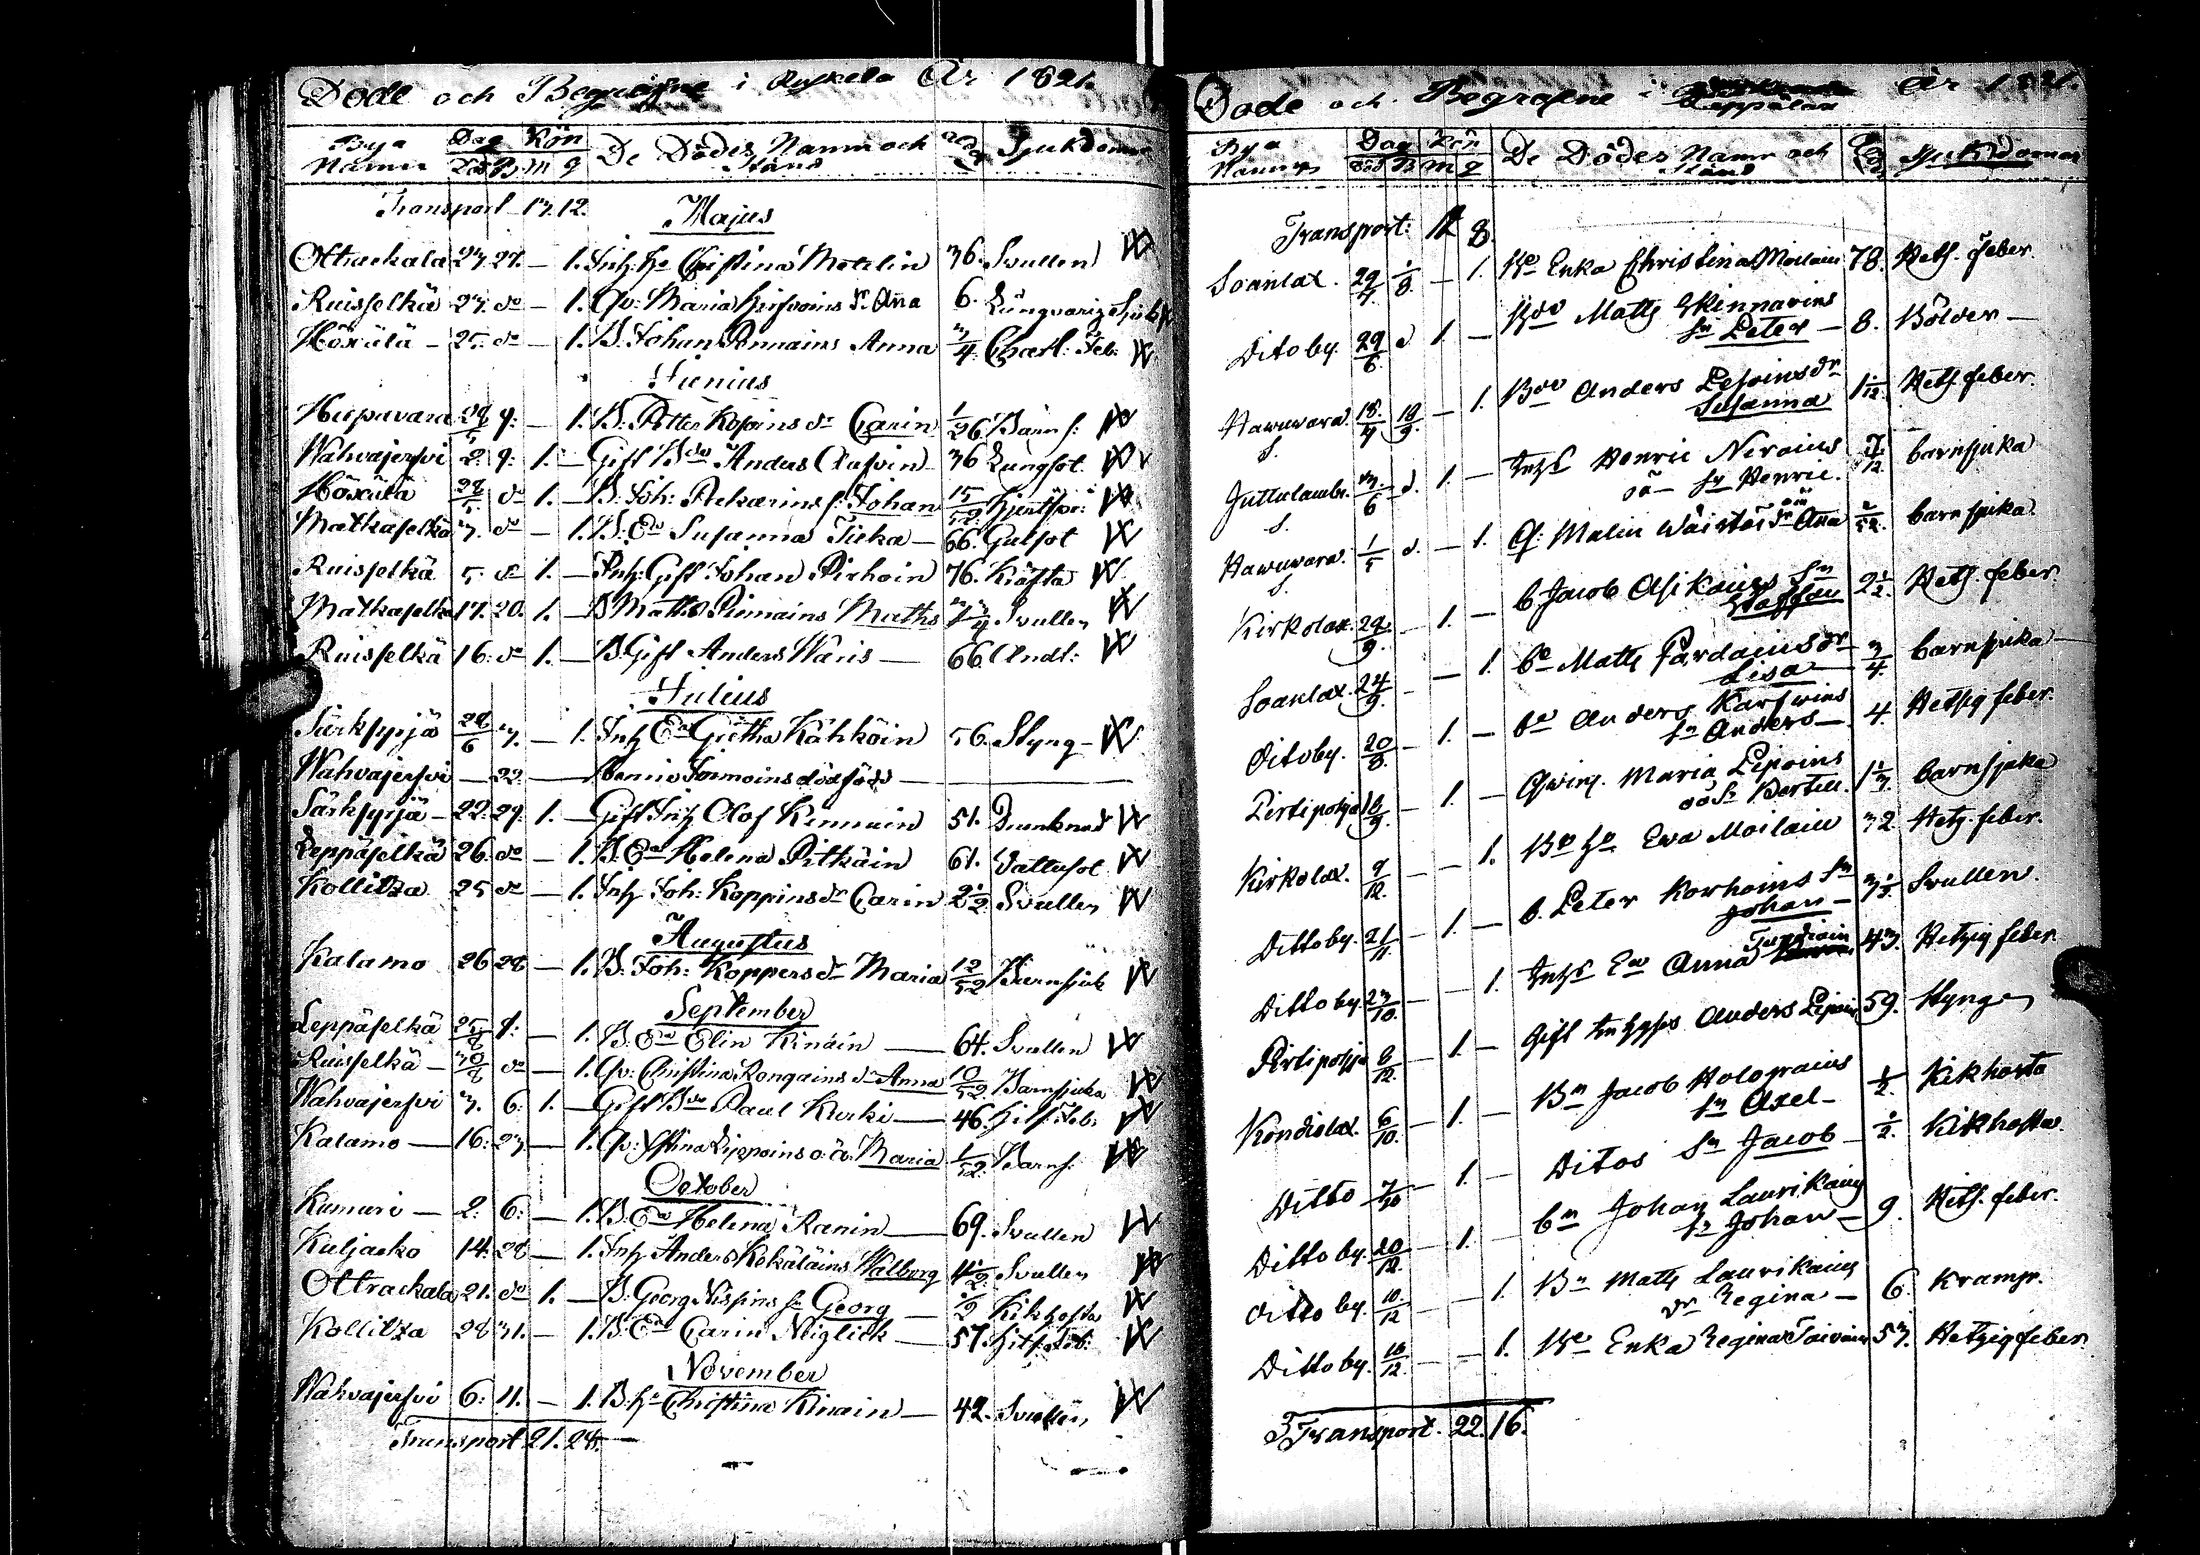 Döde och Begrafne i Ruskela År 1821.
Bya Namn Dag Död B. Kön M q De Dödes Namn och Stånd Ålder Sjukdomar
Transport 13. 12.
Majus
Ottrackala 23. 27. — 1. Inh. H. Christina Motelin 36. Svullen
Ruisselkä 23. do — 1. Qv: Maria Hirfvoins dr Anna 6. Lungvarig
Höxälä — 25. do — 1. B. Johan Pennains Anna 3/4. Charl: Feb:
Junius
Hupuvara 28/5 9: — 1. B. Petter Kopoins dr Carin 1/26 Barns:
Wahvajerfvi 2. 9. 1. — Gift Bde Anders Olafvin 36 Lungsot
Höxälä 28/5 do 1. — B. Joh: Pekarins s. Johan 15/52
Matkaselkä 3. do — 1. B. Ea Susanna Tieka — 66. Gulsot
Ruisselkä 5. do 1. — Inh: Gift Johan Pirhoin 76. Kräfta
Matkaselkä 17. 20. 1. — B Matts Pennains Matts Svullen
Ruisselkä 16. do 1. — B. Gift Anders Wäris — 66 Andt:
Julius
Särksyrjä 28/6 3. — 1. Inh Ea Gretha Kähköin 56. Styng —
Wahvajerfvi — 22. — dödfödd —
Särksyrjä — 22. 29. 1. — Gift Inh Olof Kinnuin 51. Drunknad
Leppäselkä 26. do — 1. B. Ea Helena Pitkäin 61. Vattusot
Kollitza 25 do — 1. Inh Joh: Koppins dr Carin 2 1/2 Svullen
Augustus
Kalamo 26 28 — 1. B. Joh: Koppers dr Maria 12/52 Barnsjuk
September
Leppäselkä 25/8 1: — 1. B. Ea Elin Kinäin — 64. Svullen
Ruisselkä — 30/8 do — 1. Qv: Christina Rongains dr Anna 10/52 Barnsjuka
Wahvajerfvi 3. 6. 1. — Gift Bde Paul Kurki — 46. Hits: Feb:
Kalamo — 16. 23 — 1. Qv: Stina Lippoins o.ä. Maria 1/52. Barns:
October
Kumuri — 2. 6: — 1. B. Ea Helena Ranin — 69. Svullen
Kuljacko 14. 28 — 1. Inh Anders Kekäläins Walborg 4 1/2 Svullen
Ottrackala 21. do 1. — B. Georg Nispins sn Georg — 1/2 Kikhosta
Kollitza 28 31. — 1. B. Ea Carin Neiglick — 57. Hits: Feb:
November
Wahvajerfvi 6. 11. — 1. B. H. Christina Kinain — 42. Svullen
Transport 21. 28.
Döde och Begrafne i Leppälax År 1821.
Bya Namn Dag Död B. Kön M q De Dödes Namn och Stånd Sjukdomar
Transport: 12 8.
Soanlax. 29/7. 1/8. — 1. Be Enka Christina Moilain 78. Hets. feber.
Dito by. 29/6. d 1. — Bde Matts Skinnarins
sn Peter — 8. Bölder —
Hawuvara. 18/7 19/9. — 1. Bde Anders Lepoins dr
Susanna 1 1/12 Hets feber.
Juttulambi. 3/6 d. 1. — Inhs Henric Niroins
oä — sn Henric. 7/12 barnsjuka
Hawuvara. 1/5 d. — 1. Q: Malin Wäistöis oä dr Ana barnsjuka.
Kirkolax. 29/9. — 1. — b Jacob Asikains sn
Staffan 2 1/2. Hets. feber.
Soanlax. 24/9. — 1. be Matts Pardains dr
Lisa — 3/4. barnsjuka —
Dito by. 20/8. — 1. — be Anders Karfvins
sn Anders — 4. Hetsig feber.
Pirtipohja — 1. — Qwinf. Maria Lepoins
oä sn Bertill. 1 1/3. barnsjuka
Kirkolax. 9/12. — 1. Be Ho Ewa Moilain 32 Hetz. feber.
Ditto by. 21/11. — 1. — b. Peter Korhoins sn
Johan — 3 1/2. Svullen.
Ditto by. 23/10. — 1. Inhs Ea Anna 43. Hetzig feber.
Pirtipohja 6/12. — 1. — Gift Inhyses Anders Lepoin 59. Styng
Kondiolax. 6/10. — 1. — Bn Jacob Holopains
sn Axel — 1/2. Kikhosta
Ditto 7/10 — 1. — Ditos Sn Jacob — 1/2. Kikhosta.
Ditto by. 20/12. — 1. bn Johan Laurikains
sn Johan — 9. Hits. feber.
Ditto by. 10/12 — 1. Bn Matts Laurikains
dr Regina — 6. Kramp.
Ditto by. 16/12. — 1. Be Enka Regina Toivain 53. Hetzig feber.
Transport. 22. 16.